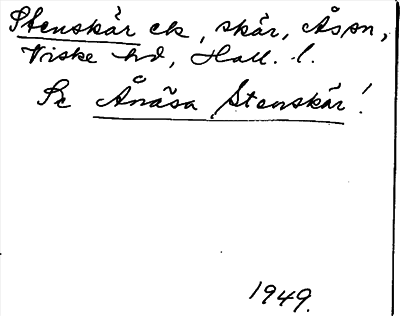 Stenskär ek, skär, Åsa sn,
Viske hd, Hall. l.
Se Ånäsa Stenskär!
1949.